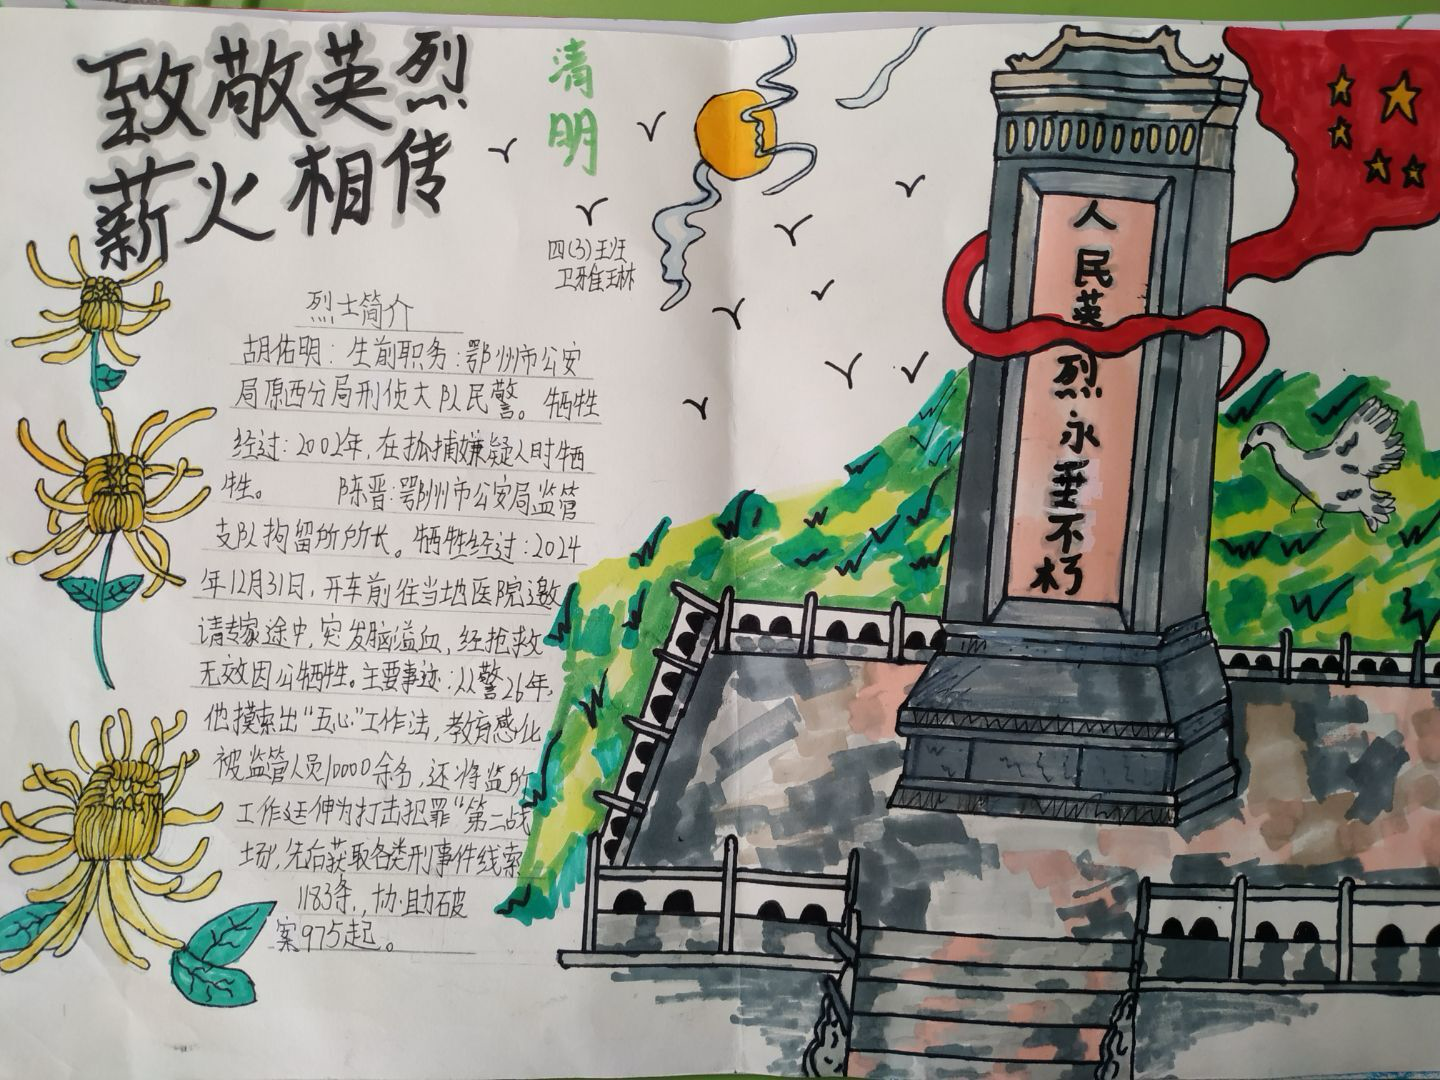 致敬英烈
薪火相传
清明
四(3)班
卫雅琳
烈士简介
胡佑明：生前职务：鄂州市公安
局原西分局刑侦大队民警。牺牲
经过：2002年，在抓捕嫌疑人时牺
牲。 陈晋：鄂州市公安局监管
支队拘留所所长。牺牲经过：2014
年12月31日，开车前往当地医院邀
请专家途中，突发脑溢血，经抢救
无效因公牺牲。主要事迹：从警26年，
他摸索出“五心”工作法，教育感化
被监管人员10000余名，还将监所
工作延伸为打击犯罪“第二战
场”，先后获取各类刑事件线索
1183条，协助破
案975起。
人民英烈永垂不朽